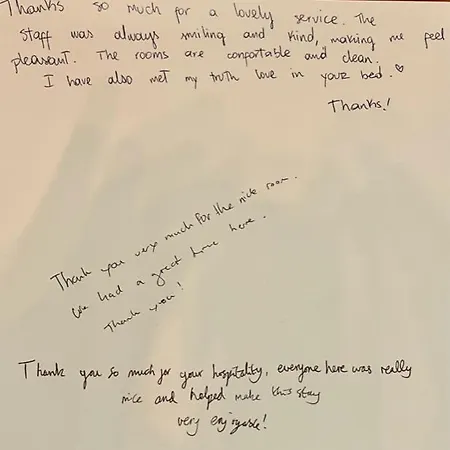 Thanks so much for a lovely service. The
staff was always smiling and kind, making me feel
pleasant. The rooms are confortable and clean.
I have also met my truth love in your bed.♡
Thanks!
Thank you very much for the nice room.
We had a great time here.
Thank you!
Thank you so much for your hospitality, everyone here was really
nice and helped make this stay
very enjoyable!